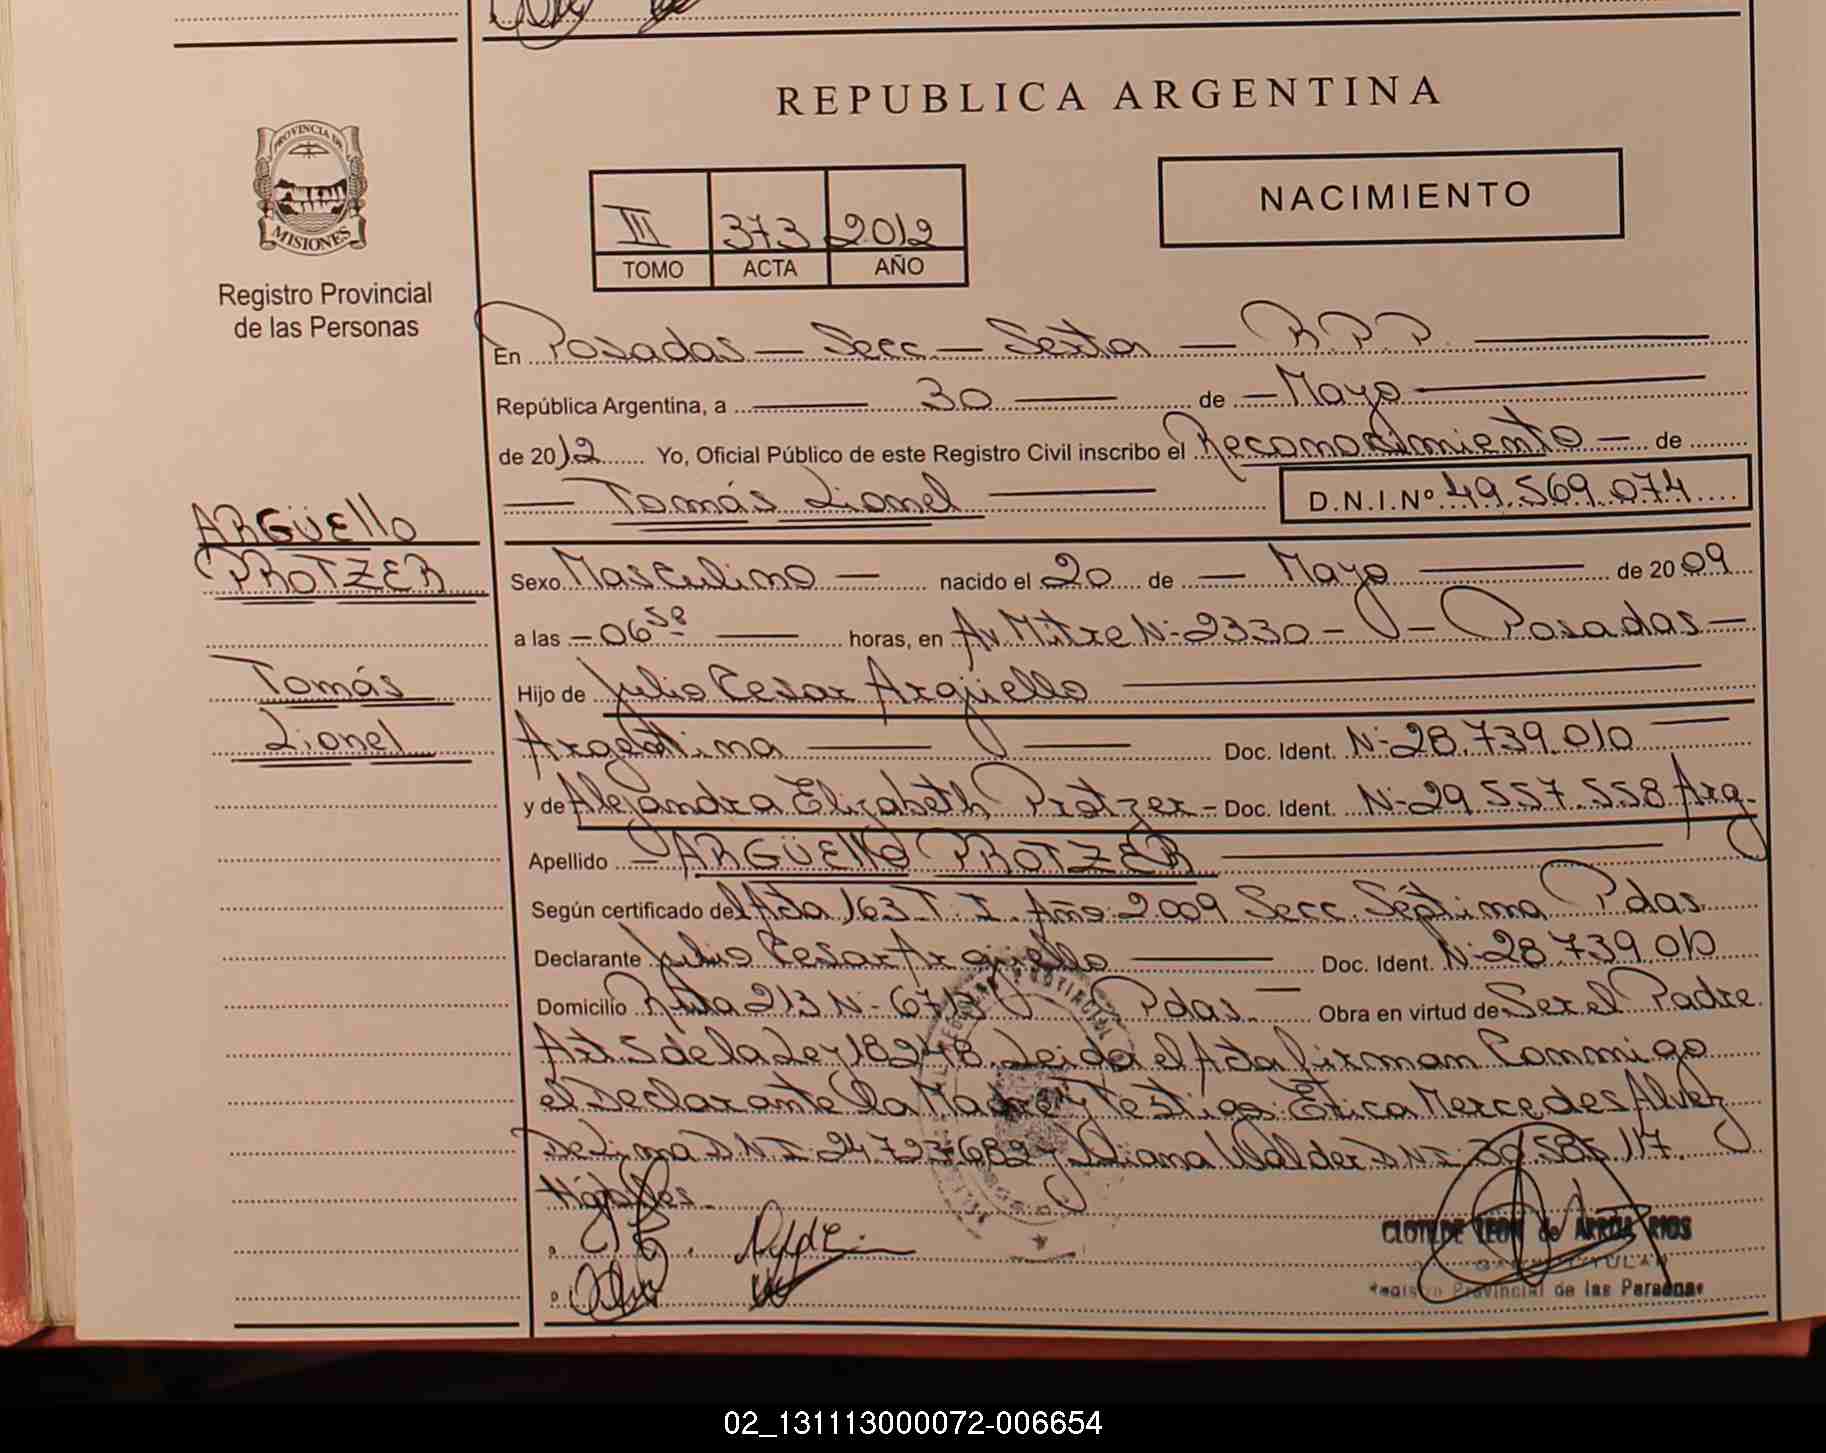 REPUBLICA ARGENTINA
PROVINCIA DE
MISIONES
Registro Provincial
de las Personas
III 373 2012
TOMO ACTA AÑO
NACIMIENTO
En Posadas — Secc — Sexta — R.P.P.
República Argentina, a — 30 — de — Mayo —
de 2012 Yo, Oficial Público de este Registro Civil inscribo el Reconocimiento — de
— Tomás Lionel — D.N.I.Nº 49.569.074
ARGÜEllO
PROTZER
Tomás
Lionel
Sexo Masculino — nacido el 20 de — Mayo — de 2009
a las — 06 58 — horas, en Av. Mitre Nº 2330 — Posadas —
Hijo de Julio Cesar Argüello —
Argentina — Doc. Ident. Nº 28.739.010 —
y de Alejandra Elizabeth Protzer — Doc. Ident. Nº 29.557.558 Arg.
Apellido — ARGÜEllO PROTZER —
Según certificado del Acta 163 T. I. Año 2009 Secc. Séptima Pdas
Declarante Julio Cesar Argüello — Doc. Ident. Nº 28.739.010
Domicilio Ruta 213 Nº Pdas. — Obra en virtud de Ser el Padre
Art. 5 de la Ley 18248. Leida el Acta firman Conmigo
el Declarante la Madre y Testigos: Erica Mercedes Alvez
De Lima D.N.I. 24.727.682 y Liliana Walder DNI 30.585.117.
Hábiles.
CLOTILDE LEON de ARRUA RIOS
Registro Provincial de las Personas
02_131113000072-006654